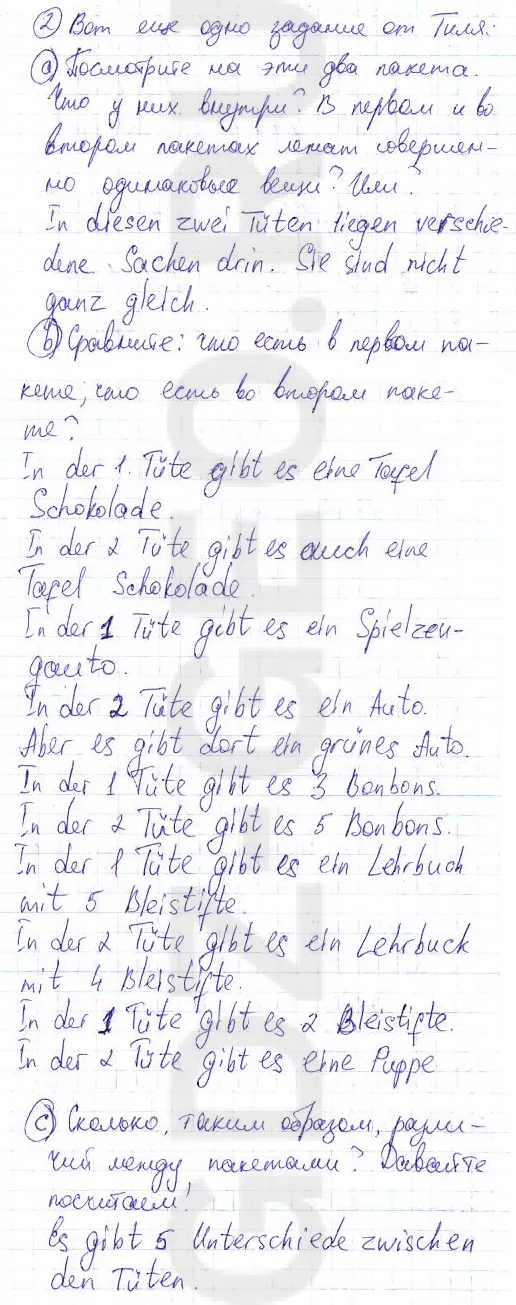 ② Вот еще одно задание от Тиля:
ⓐ Посмотрите на эти два пакета.
Что у них внутри? В первом и во
втором пакетах лежат совершен-
но одинаковые вещи? Или?
In diesen zwei Tüten liegen verschie-
dene Sachen drin. Sie sind nicht
ganz gleich.
ⓑ Сравните: что есть в первом па-
кете, что есть во втором паке-
те?
In der 1. Tüte gibt es eine Tafel
Schokolade.
In der 2 Tüte gibt es auch eine
Tafel Schokolade.
In der 1 Tüte gibt es ein Spielzeu-
gauto.
In der 2 Tüte gibt es ein Auto.
Aber es gibt dort ein grünes Auto.
In der 1 Tüte gibt es 3 Bonbons.
In der 2 Tüte gibt es 5 Bonbons.
In der 1 Tüte gibt es ein Lehrbuch
mit 5 Bleistifte.
In der 2 Tüte gibt es ein Lehrbuck
mit 4 Bleistifte.
In der 1 Tüte gibt es 2 Bleistifte.
In der 2 Tüte gibt es eine Puppe
ⓒ Сколько, таким образом, разли-
чий между пакетами? Давайте
посчитаем!
Es gibt 5 Unterschiede zwischen
den Tüten.
GDZ-GEO.RU